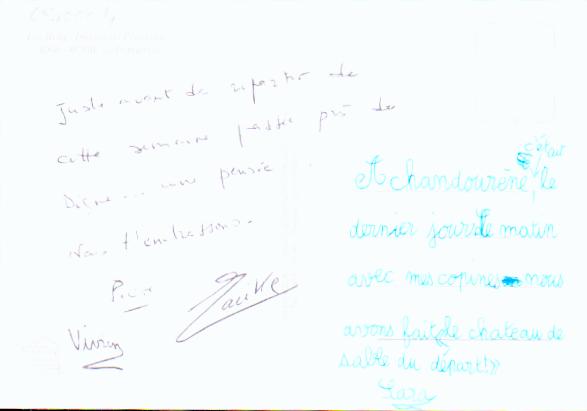 Juste avant de repartir de
cette semaine passée près de
Digne... une pensée.
Nous t'embrassons.
Vivien
c'était
A chandourène, le
dernier jour le matin
avec mes copines nous
avons fait le chateau de
sable du départ!»
Sara